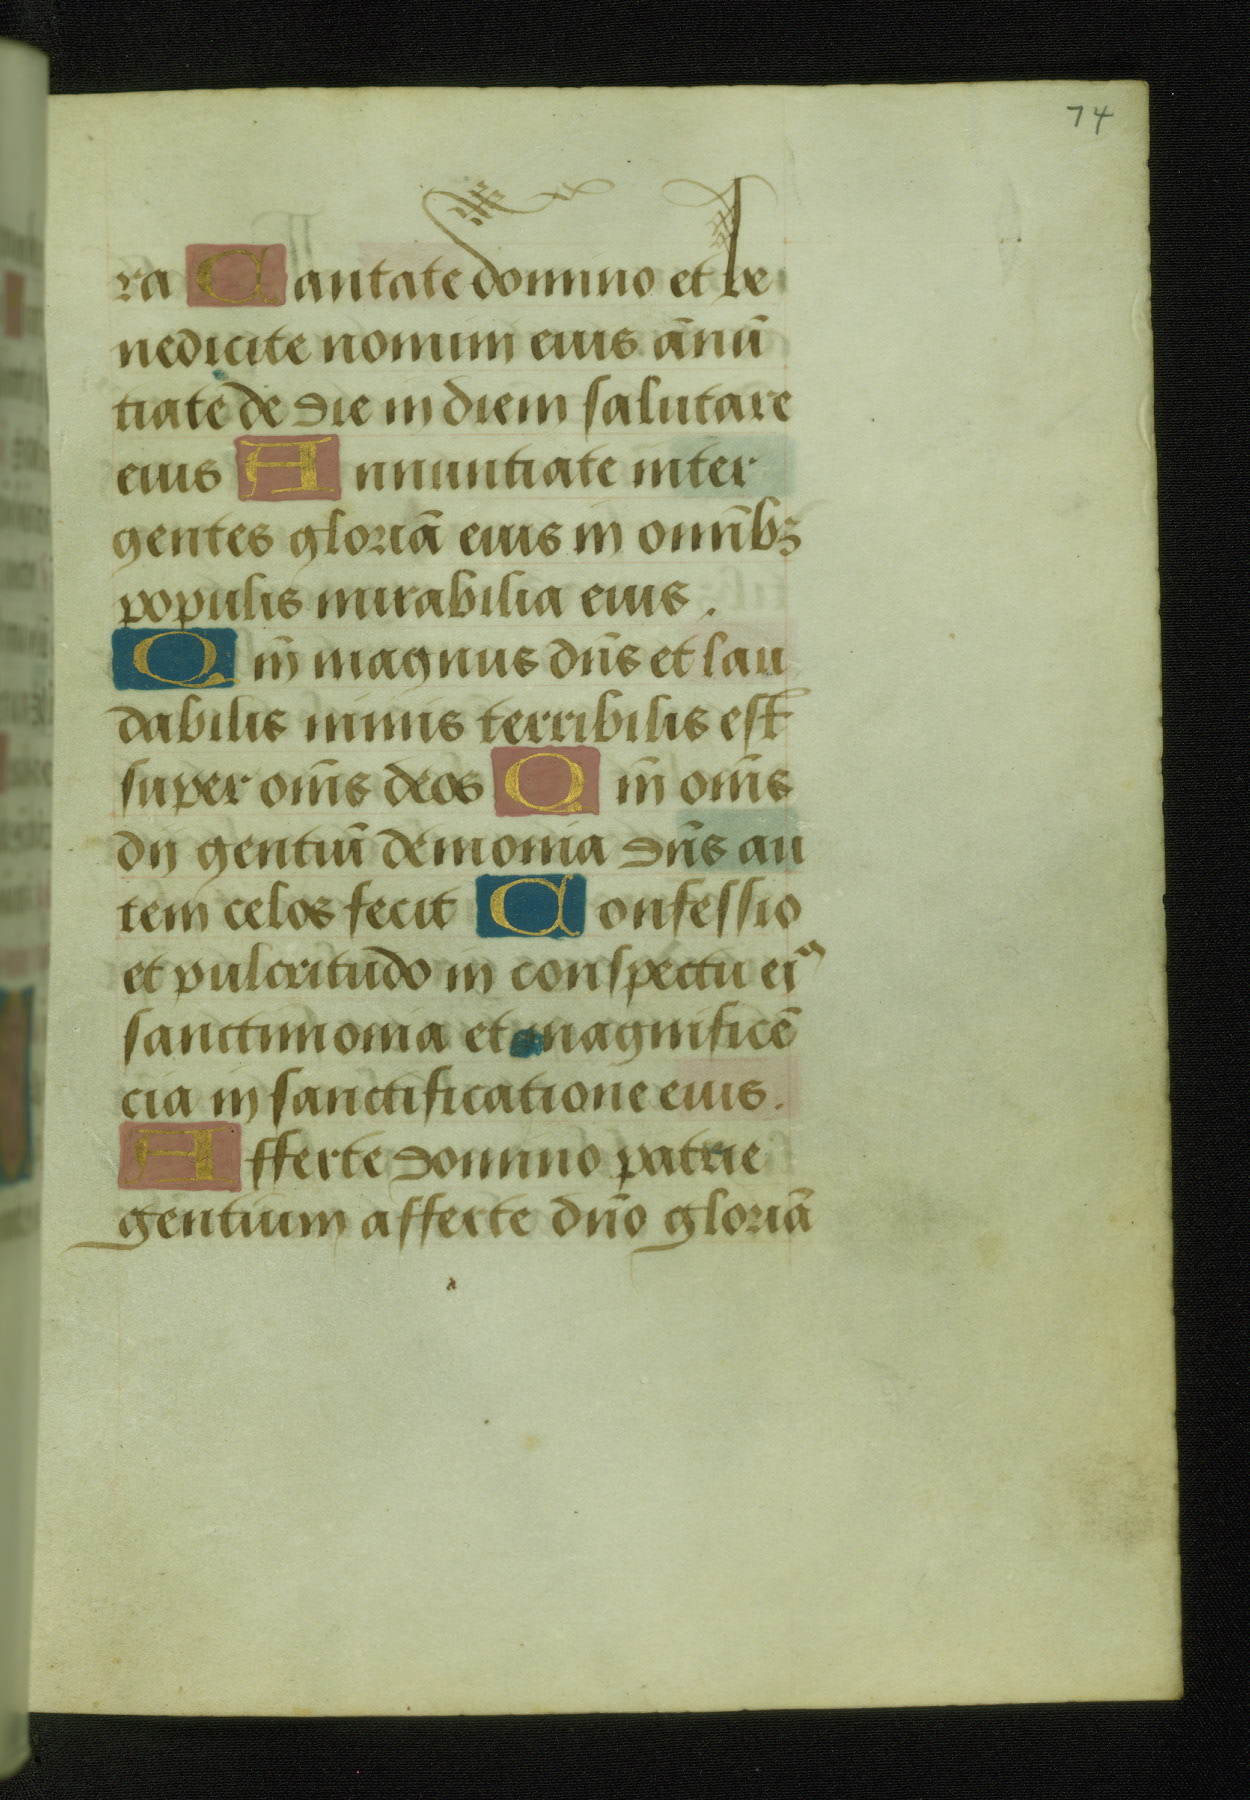 74
ra Cantate domino et be
nedicite nomini eius ānū
tiate de die in diem salutare
eius Annuntiate inter
gentes gloriā eius in omībꝫ
populis mirabilia eius.
Qm̄ magnus dn̄s et lau
dabilis nimis terribilis est
super om̄s deos Qm̄ om̄s
dij gentiū demonia dn̄s au
tem celos fecit Confessio
et pulcritudo in conspectu eiꝰ
sanctimonia et magnificē
cia in sanctificatione eius.
Afferte domino patrie
gentium afferte dn̄o gloriā